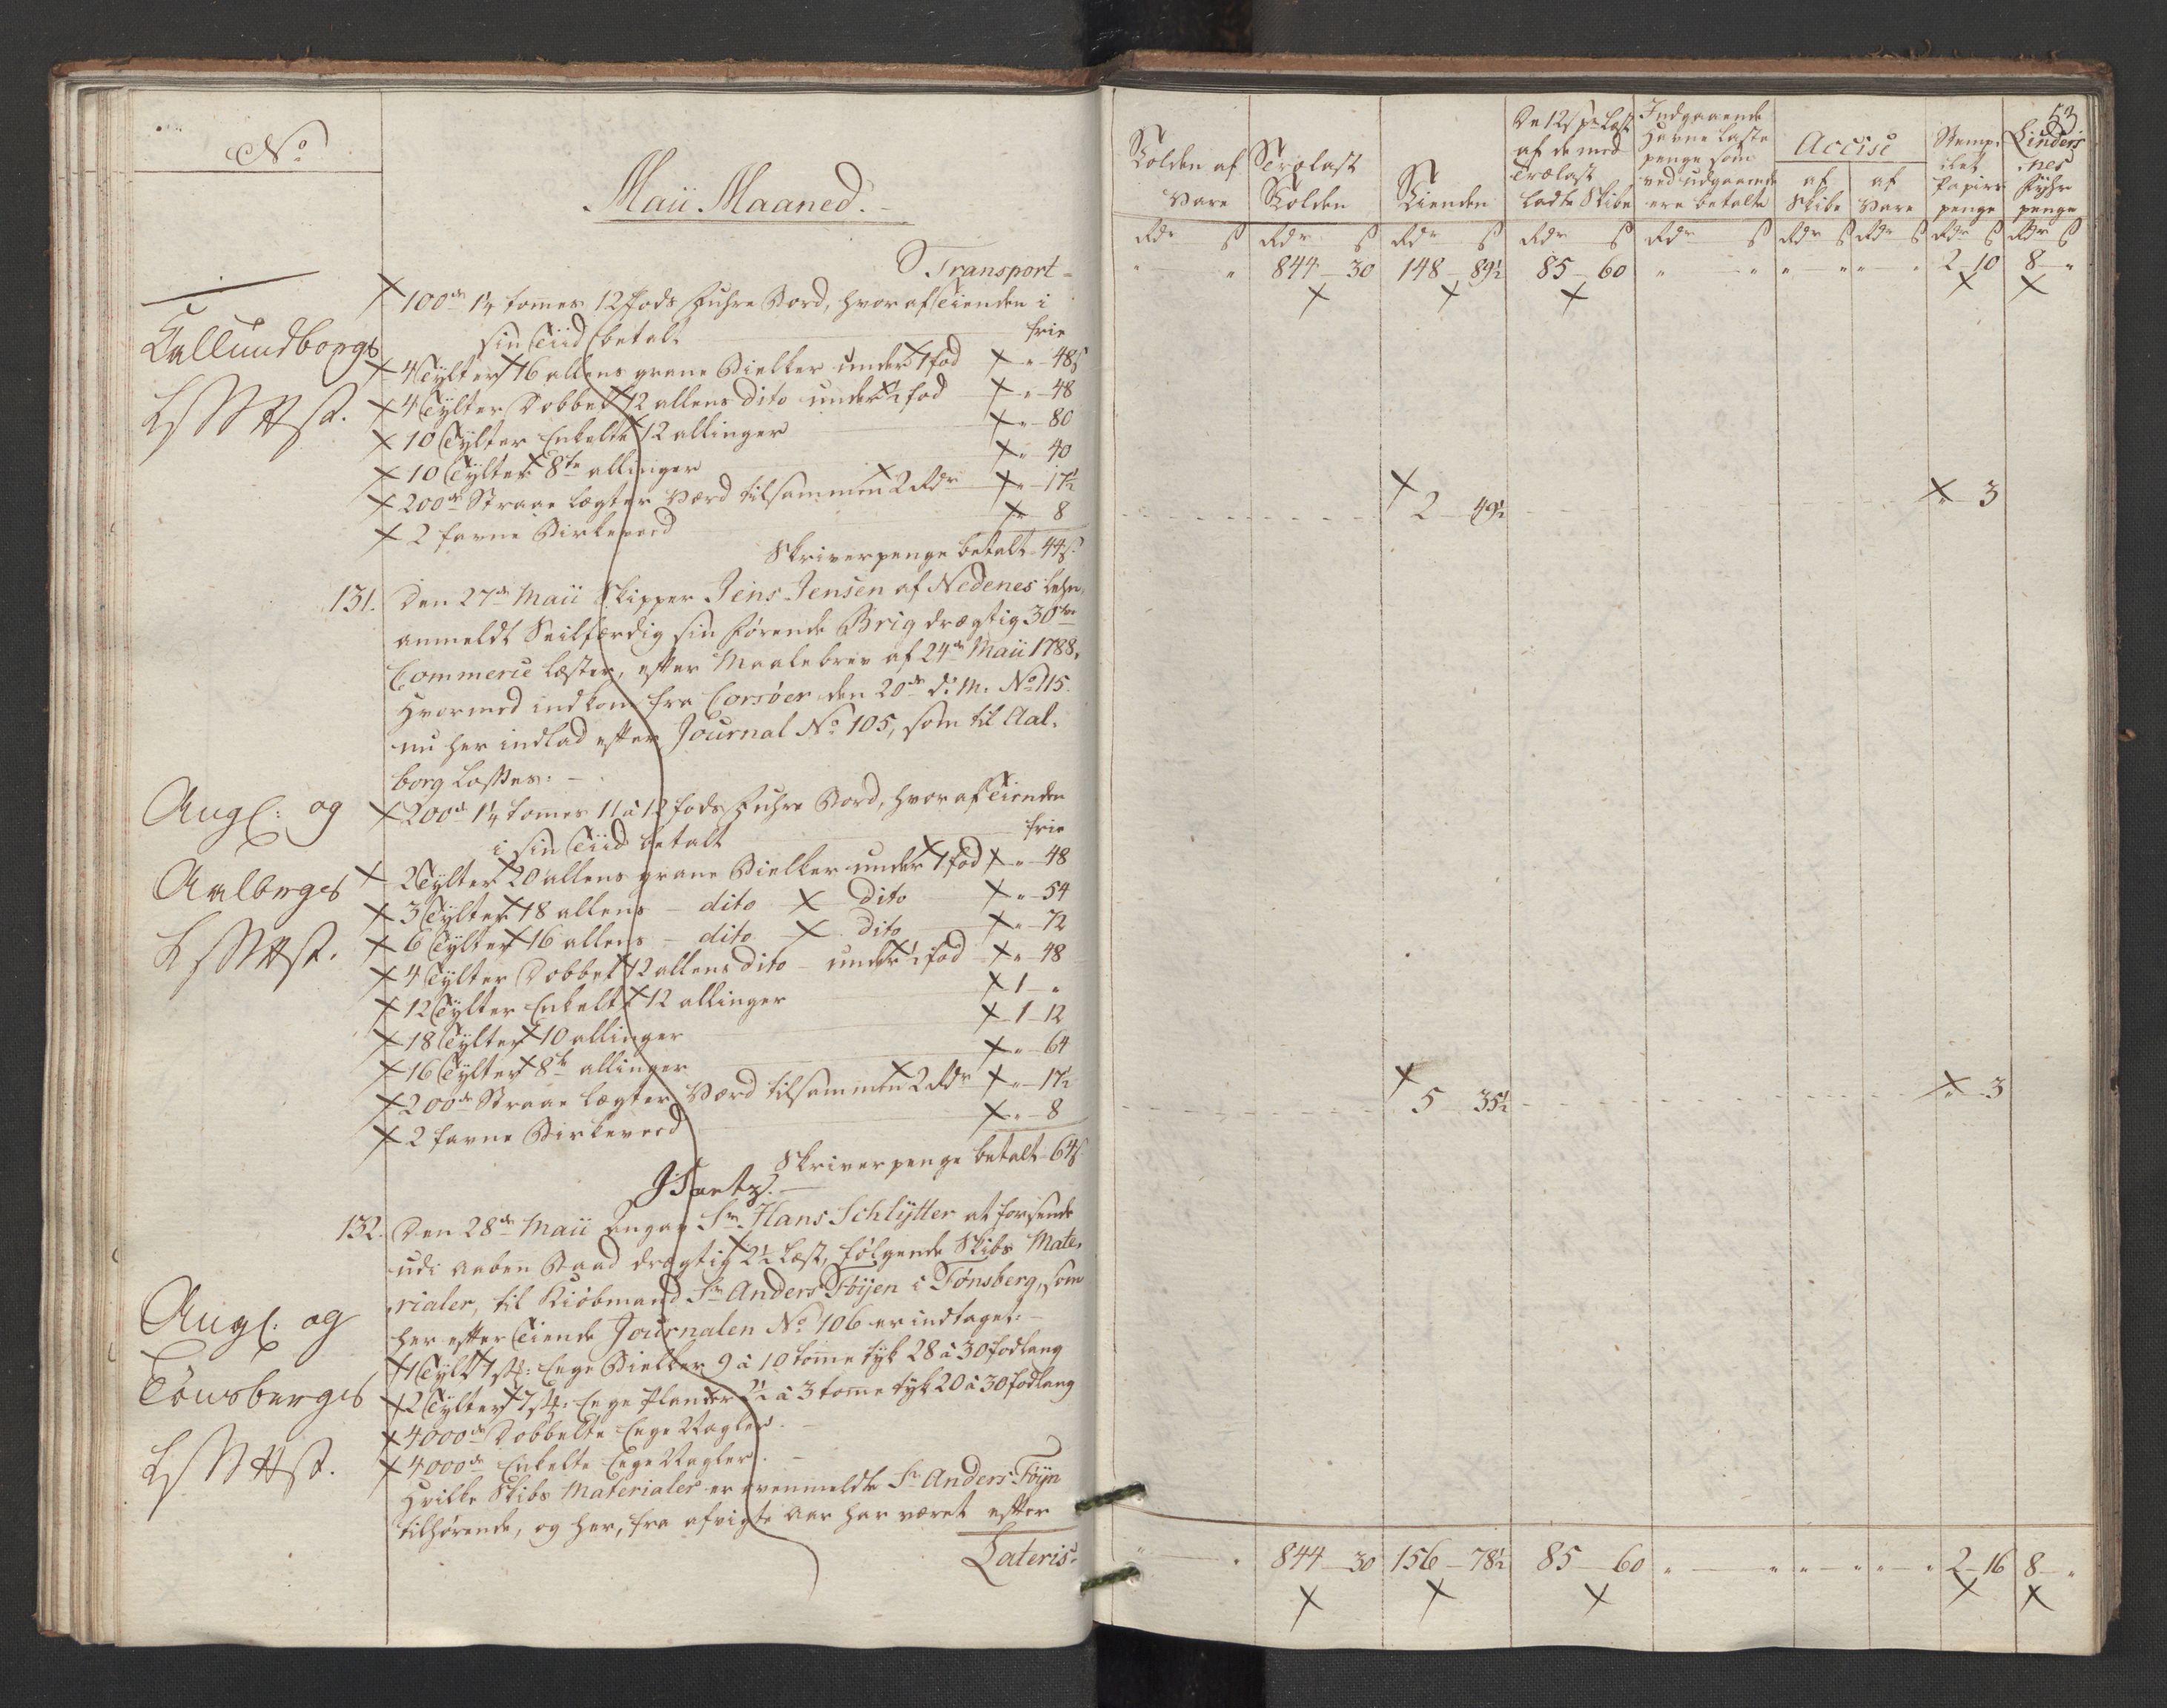 No
Maii Maaned.
Transport
100de 1¼ tommes 12 Fods Fuhre Bord, hvoraf Tienden i
sin Tiid betalt frie
Callundborgs
4 Tylter 16 allens grane Bielker under 1 fod " 48ß
4 Tylter Dobbelt 12 allens dito under ½ fod " 48
10 Tylter Enkelte 12 allinger " 80
10 Tylter 8te allinger " 40
200de Straae Lægter Værd tilsammen 2 Rdr " 17½
2 favne Birkeveed " 8
Skriverpenge betalt 44ß.
131. Den 27de Maii Skipper Jens Jensen af Nedenes Lehn,
anmeldt Seilfærdig sin førende Brig drægtig 30tve
Commerce Læster, efter Maalebrev af 24de Maii 1788,
hvormed indkom fra Corsöer den 20de d. M. No 115.
nu her indlad efter Journal No 105, som til Aal-
borg Losses:
Angl: og
200de 1¼ tommes 11 à 12 fods Fuhre Bord, hvoraf Tienden
i sin Tiid betalt frie
Aalborgs
2 Tylter 20 allens grane Bielker under 1 fod " 48
3 Tylter 18 allens dito dito " 54
6 Tylter 16 allens dito dito " 72
4 Tylter Dobbelt 12 allens dito under ½ fod " 48
12 Tylter Enkelte 12 allinger 1 "
18 Tylter 10 allinger 1 12
16 Tylter 8te allinger " 64
200de Straae Lægter Værd tilsammen 2 Rdr " 17½
2 favne Birkeveed " 8
Skriverpenge betalt 64ß
132. Den 28de Maii Angav Sr. Hans Schlytter at forsende
udi aaben Baad drægtig 2½ Læst, følgende Skibs Mate-
rialer, til Kiöbmand Sr. Anders Föyen i Tönsberg, som
her efter Tiende Journalen No 106 er indtaget:
Angl: og
1 Tylt 1 st: Eege Bielker 9 à 10 tomme tyk 28 à 30 fod lang
Tönsbergs
2 Tylter 7 st: Eege Planker 2½ à 3 tomme tyk 20 à 30 fod lang
4000de Dobbelte Eege Nagler.
4000de Enkelte Eege Nagler.
hvilke Skibs Materialer er ovenmeldte Sr. Anders Föyn
tilhørende, og her, fra afvigte Aar har været efter
Lateris
53
Tolden af Vare
Trælast Tolden
Tienden
De 12ß pr Læst af de med Trælast ladte Skibe
Indgaaende Havne Laste penge som ved udgaaende ere betalte
Accise
af Skibe
af Vare
Stemp: let Papiirs penge
Lindes nes Fyhr penge
Rdr ß Rdr ß Rdr ß Rdr ß Rdr ß Rdr ß Rdr ß Rdr ß Rdr ß
" " 844 30 148 89½ 85 60 " " " " " " 2 10 8 "
2 49½ " 3
5 35½ " 3
" " 844 30 156 78½ 85 60 " " " " " " 2 16 8 "